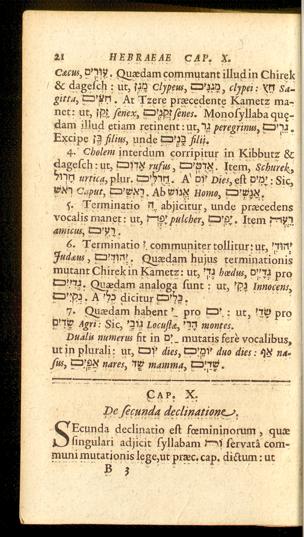 21 HEBRAEAE CAP. X.
Cæcus, עִוְרִים. Quædam commutant illud in Chirek
& dagesch: ut, מָגֵן Clypeus, מָגִנִּים, clypei: חֵץ Sa-
gitta, חִצִּים. At Tzere præcedente Kametz ma-
net: ut, זָקֵן senex, זְקֵנִים senes. Monosyllaba que-
dam illud etiam retinent: ut, גֵּר peregrinus, גֵּרִים.
Excipe בֵּן filius, unde בָּנִים filii.
4. Cholem interdum corripitur in Kibbutz &
dagesch: ut, אָדוֹם rufus, אֲדֻמִּים. Item, Schurek,
חָרוּל urtica, plur. חֲרֻלִּים. A יוֹם Dies, est יָמִים: Sic,
רֹאשׁ Caput, רָאשִׁים. Ab אֱנוֹשׁ Homo, אֲנָשִׁים.
5. Terminatio ־ֶה abjicitur, unde præcedens
vocalis manet: ut, יָפֶה pulcher, יָפִים. Item רֵעֶה
amicus, רֵעִים.
6. Terminatio ־ִי communiter tollitur: ut, יְהוּדִי
Judæus, יְהוּדִים. Quædam hujus terminationis
mutant Chirek in Kametz: ut, גְּדִי hœdus, גְּדָיִים pro
גְּדִיִּים. Quædam analoga sunt: ut, נָקִי Innocens,
נְקִיִּים. A כְּלִי dicitur כֵּלִים.
7. Quædam habent ־ַי pro ־ִים: ut, שָׂדַי pro
שָׂדִים Agri: Sic, גּוֹבַי Locustæ, הָרַי montes.
Dualis numerus fit in ־ַיִם mutatis ferè vocalibus,
ut in plurali: ut, יוֹם dies, יוֹמַיִם duo dies: אַף na-
sus, אַפַּיִם nares, שַׁד mamma, שָׁדַיִם.
CAP. X.
De secunda declinatione.
SEcunda declinatio est fœmininorum, quæ
singulari adjicit syllabam וֹת servatâ com-
muni mutationis lege, ut præc. cap. dictum: ut
B 3